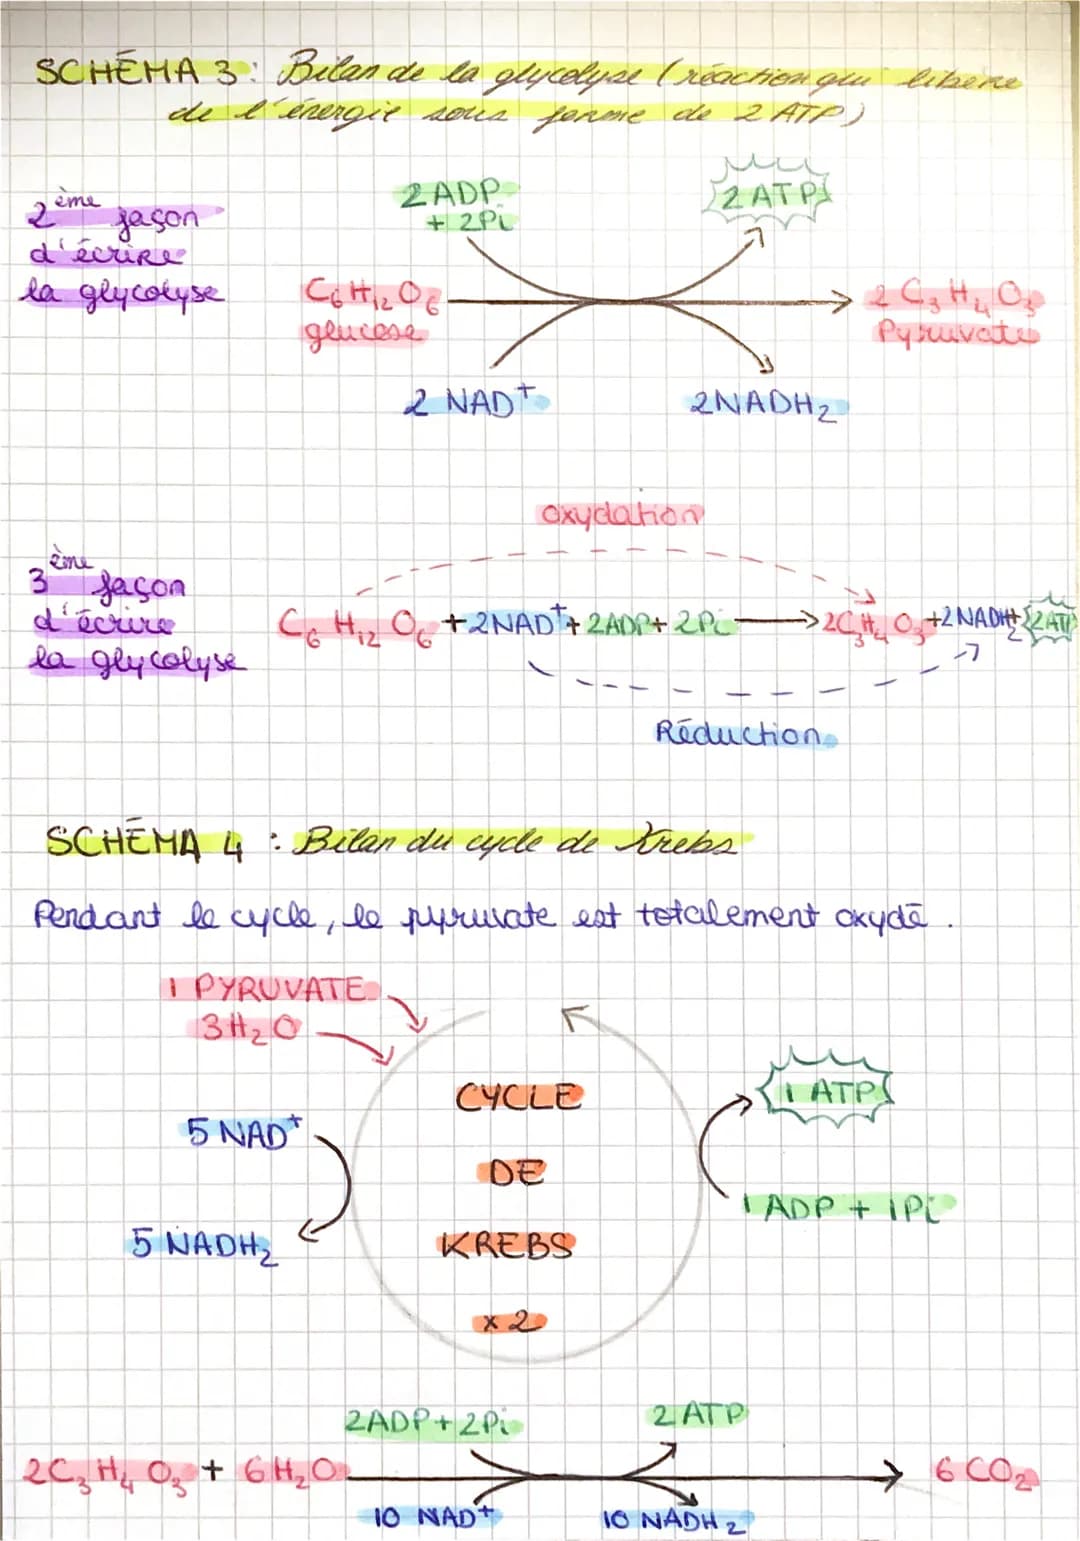 SCHÉMA 3 : Bilan de la glycolyse (réaction qui libère
de l'énergie sous forme de 2 ATP)
2ème façon
d'écrire
la glycolyse
2 ADP
+ 2Pi
2 ATP
C6 H12 O6
glucose
2 C3 H4 O3
Pyruvate
2 NAD+
2NADH2
oxydation
3ème façon
d'écrire
la glycolyse
C6 H12 O6 + 2NAD+ + 2ADP + 2Pi → 2C3H4O3 + 2NADH2 + 2ATP
Réduction
SCHÉMA 4 : Bilan du cycle de Krebs
Pendant le cycle, le pyruvate est totalement oxydé.
1 PYRUVATE
3H2O
5 NAD+
5 NADH2
CYCLE
DE
KREBS
x 2
1 ATP
1 ADP + 1Pi
2ADP + 2Pi
2 ATP
2C3 H4 O3 + 6H2O → 6 CO2
10 NAD+
10 NADH2